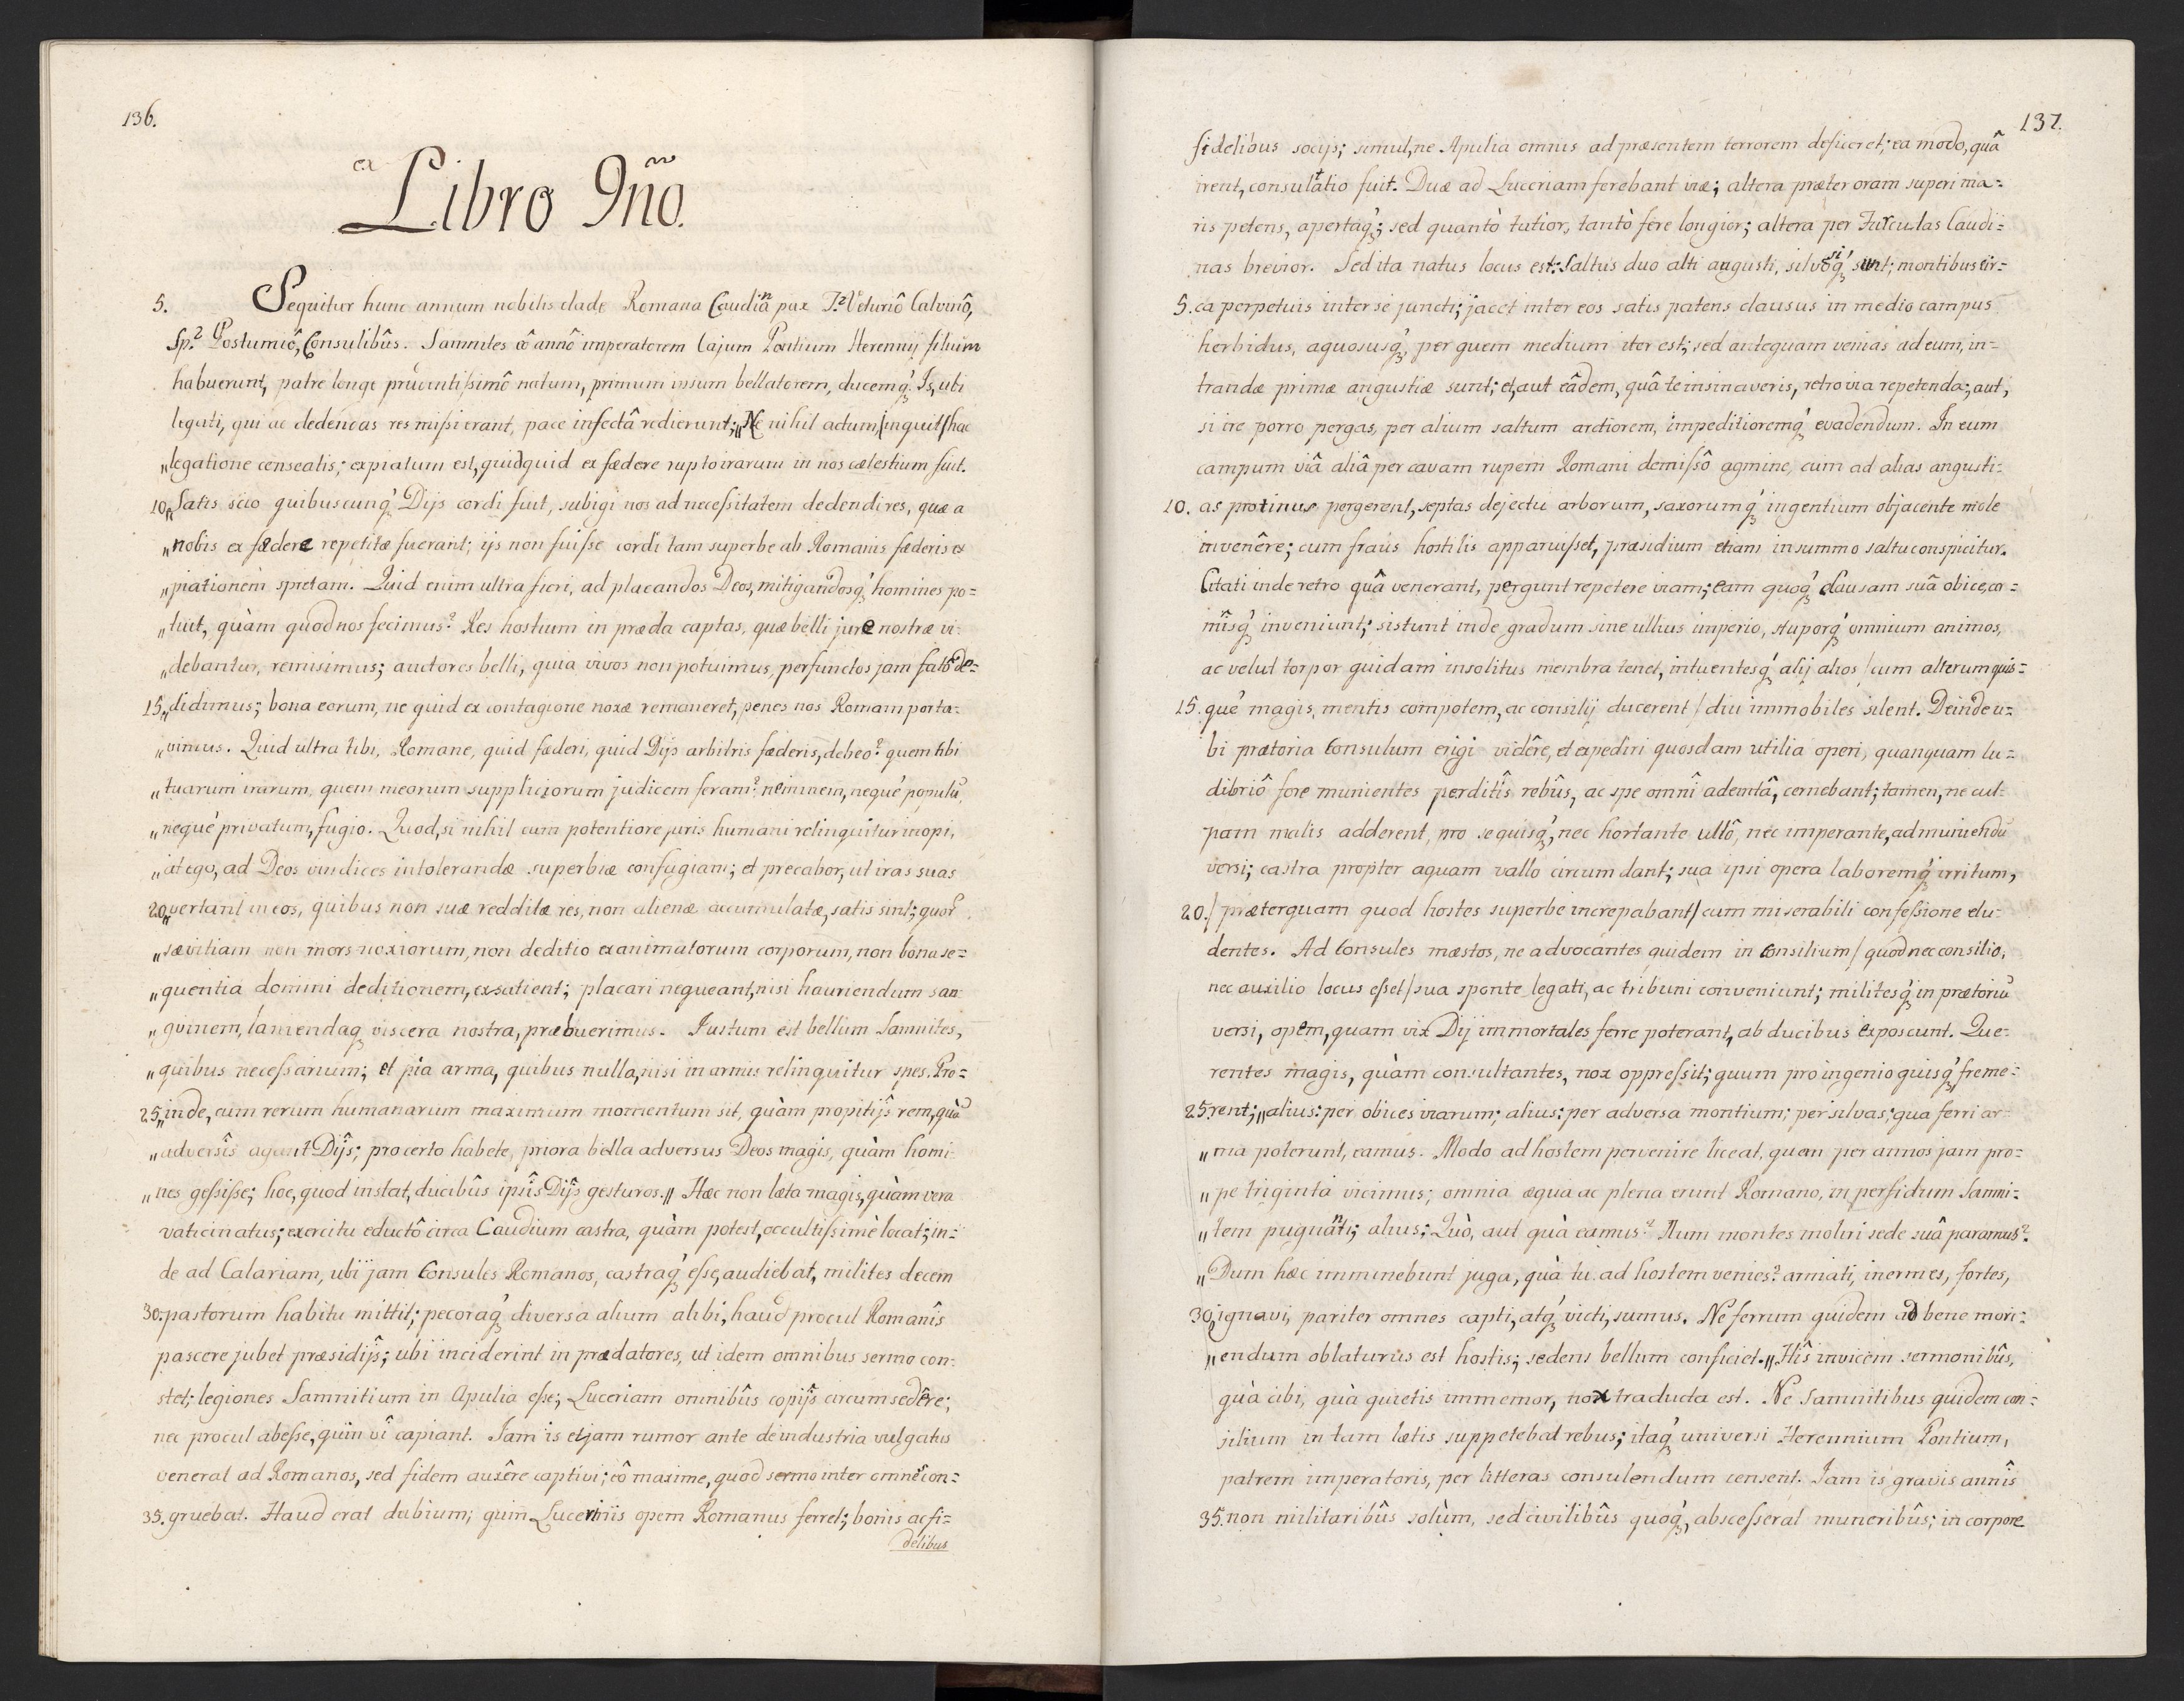 136.
ex Libro 9nõ.
5. Sequitur hunc annum nobilis clade Romana Caudina pax T. Veturiô Calvinô,
Sp. Postumiô, Consulibûs. Samnites eô annô imperatorem Cajum Pontium Herennij filium
habuerunt, patre longe prudentissimô natum, primum ipsum bellatorem, ducemq́3. Is, ubi
legati, qui ac dedendas res missi erant, pace infectâ redierunt; „Ne nihil actum /inquit/ hac
„legatione censeatis; expiatum est, quidquid ex fædere rupto irarum in nos cælestium fuit.
10.„Satis scio quibuscunq́3 Dijs cordi fuit, subigi nos ad necessitatem dedendi res, quæ a
„nobis ex fædere repetitæ fuerant; ijs non fuisse cordi tam superbe ab Romanis fæderis ex
„piationem spretam. Quid enim ultra fieri, ad placandos Deos, mitigandosq́3 homines po=
„tuit, quàm quod nos fecimus? Res hostium in præda captas, quæ belli jure nostræ vi-
„debantur, remisimus; auctores belli, quia vivos non potuimus, perfunctos jam fatô de=
15.„didimus; bona eorum, ne quid ex contagione noxæ remaneret, penes nos Romam porta-
„vimus. Quid ultra tibi, Romane, quid fæderi, quid Dijs arbitris fæderis, debeo? quem tibi
„tuarum irarum, quem meorum suppliciorum judicem feram? neminem, neque populũ,
„neque privatum, fugio. Quod, si nihil cum potentiore juris humani relinquitur inopi,
„at ego, ad Deos vindices intolerandæ superbiæ confugiam; et precabor, ut iras suas
20.„vertant in eos, quibus non suæ redditæ res, non alienæ accumulatæ, satis sint; quor̃
„sævitiam non mors noxiorum, non deditio exanimatorum corporum, non bona se=
„quentia domini deditionem, exsatient; placari nequeant, nisi hauriendum san-
„gvinem, laniendaq3 viscera nostra, præbuerimus. Justum est bellum Samnites,
„quibus necessarium; et pia arma, quibus nulla, nisi in armis relinquitur spes. Pro=
25.„inde, cum rerum humanarum maximum momentum sit, quàm propitijs rem, quã
„adversîs agant Dijs; pro certo habete, priora bella adversus Deos magis, quàm homi-
„nes gessisse; hoc, quod instat, ducibûs ipsîs Dijs gesturos.„ Hæc non læta magis, quàm vera
vaticinatus; exercitu eductô circa Caudium castra, quàm potest, occultissimè locat; in-
de ad Calatiam, ubi jam Consules Romanos, castraq́3 esse, audiebat, milites decem
30. pastorum habitu mittit; pecoraq́3 diversa alium alibi, haud procul Romanîs
pascere jubet præsidijs; ubi inciderint in prædatores, ut idem omnibus sermo con-
stet; legiones Samnitium in Apulia esse; Luceriam omnibûs copijs circumsedêre;
nec procul abesse, quin vî capiant. Jam is etjam rumor ante de industria vulgatus
venerat ad Romanos, sed fidem auxêre captivi; eô maxime, quod sermo inter omnes con=
35. gruebat. Haud erat dubium; quin Luceriniis opem Romanus ferret; bonis ac fi=
delibus
137.
fidelibus socijs; simul, ne Apulia omnis ad præsentem terrorem deficeret; ea modo, quâ
irent, consultatio fuit. Duæ ad Luceriam ferebant viæ; altera præter oram superi ma=
ris petens, apertaq́3; sed quantò tutior, tantò fere longior; altera per Furculas Caudi=
nas brevior. Sed ita natus locus est: Saltus duo alti angusti, silvosiq́3 sunt; montibus cir=
5. ca perpetuis inter se juncti; jacet inter eos satis patens clausus in medio campus
herbidus, aquosusq́3, per quem medium iter est; sed antequam venias ad eum, in=
trandæ primæ angustiæ sunt; et, aut eâdem, quâ te insinaveris, retro via repetenda; aut,
si ire porro pergas, per alium saltum arctiorem, impeditioremq́3 evadendum. In eum
campum viâ aliâ per cavam rupem Romani demissô agmine, cum ad alias angusti-
10. as protinus pergerent, septas dejectu arborum, saxorumq́3 ingentium objacente mole
invenêre; cum fraus hostilis apparuisset, præsidium etiam in summo saltu conspicitur.
Citati inde retro quâ venerant, pergunt repetere viam; eam quoq́3 clausam suâ obice, ar=
misq́3 inveniunt; sistunt inde gradum sine ullius imperio, stuporq́3 omnium animos,
ac velut torpor quidam insolitus membra tenet, intuentesq́3 alij alios /cum alterum quis=
15. que magis, mentis compotem, ac consilij ducerent/ diu immobiles silent. Deinde u=
bi prætoria Consulum erigi vidêre, et expediri quosdam utilia operi, quanquam lu=
dibriô fore munientes perditîs rebûs, ac spe omnî ademtâ, cernebant; tamen, ne cul-
pam malis adderent, pro se quisq́3, nec hortante ullô, nec imperante, ad muniendũ
versi; castra propter aquam vallo circumdant; sua ipsi opera laboremq́3 irritum,
20. /præterquam quod hostes superbe increpabant/ cum miserabili confessione elu-
dentes. Ad Consules mæstos, ne advocantes quidem in Consilium /quod nec consilio,
nec auxilio locus esset/ sua sponte legati, ac tribuni conveniunt; militesq́3 in prætoriũ
versi, opem, quam vix Dij immortales ferre poterant, ab ducibus exposcunt. Que-
rentes magis, quàm consultantes, nox oppressit; quum pro ingenio quisq́3 freme-
25. rent; „alius: per obices viarum; alius: per adversa montium; per silvas; qua ferri ar-
„ma poterunt, eamus. Modo ad hostem pervenire liceat, quem per annos jam pro=
„pe triginta vicimus; omnia æqua ac plena erunt Romano, in perfidum Samni-
„tem pugnanti; alius: Quò, aut quà eamus? Num montes moliri sede suâ paramus?
„Dum hæc imminebunt juga, quà tu ad hostem venies? armati, inermes, fortes,
30.„ignavi, pariter omnes capti, atq́3 victi, sumus. Ne ferrum quidem ad bene mori-
„endum oblaturus est hostis; sedens bellum conficiet.„ Hîs invicem sermonibûs,
quà cibi, quà quietis immemor, nox traducta est. Ne Samnitibus quidem con-
silium in tam lætis suppetebat rebus; itaq́3 universi Herennium Pontium,
patrem imperatoris, per litteras consulendum censent. Jam is gravis annîs
35. non militaribûs solùm, sed civilibûs quoq́3, abscesserat muneribûs; in corpore